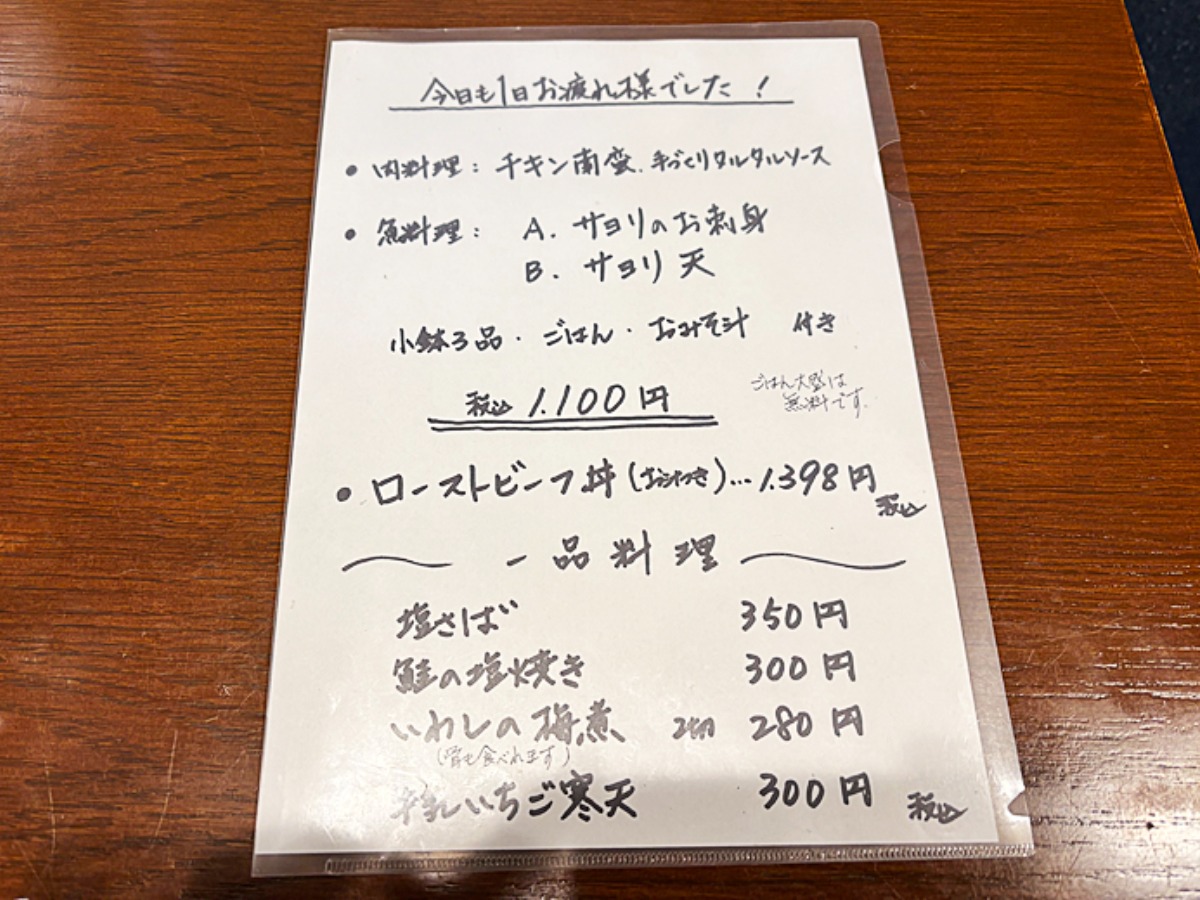 今日も1日お疲れ様でした!
• 肉料理: チキン南蛮.手づくりタルタルソース
• 魚料理: A. サヨリのお刺身
B. サヨリ天
小鉢3品・ごはん・おみそ汁 付き
税込 1.100円
ごはん大盛は
無料です.
• ローストビーフ丼(お汁つき)…1.398円
税込
一品料理
塩さば 350円
鮭の塩焼き 300円
いわしの梅煮 2切 280円
(骨も食べれます)
牛乳いちご寒天 300円
税込